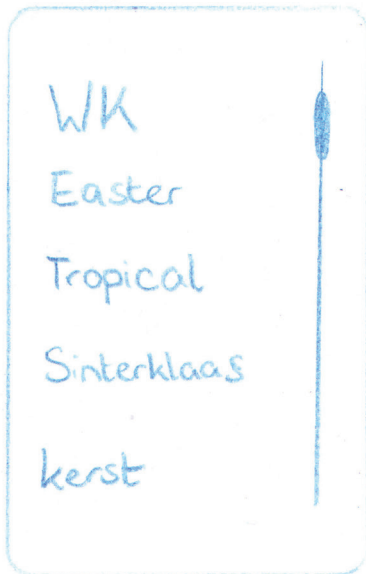 WK
Easter
Tropical
Sinterklaas
kerst